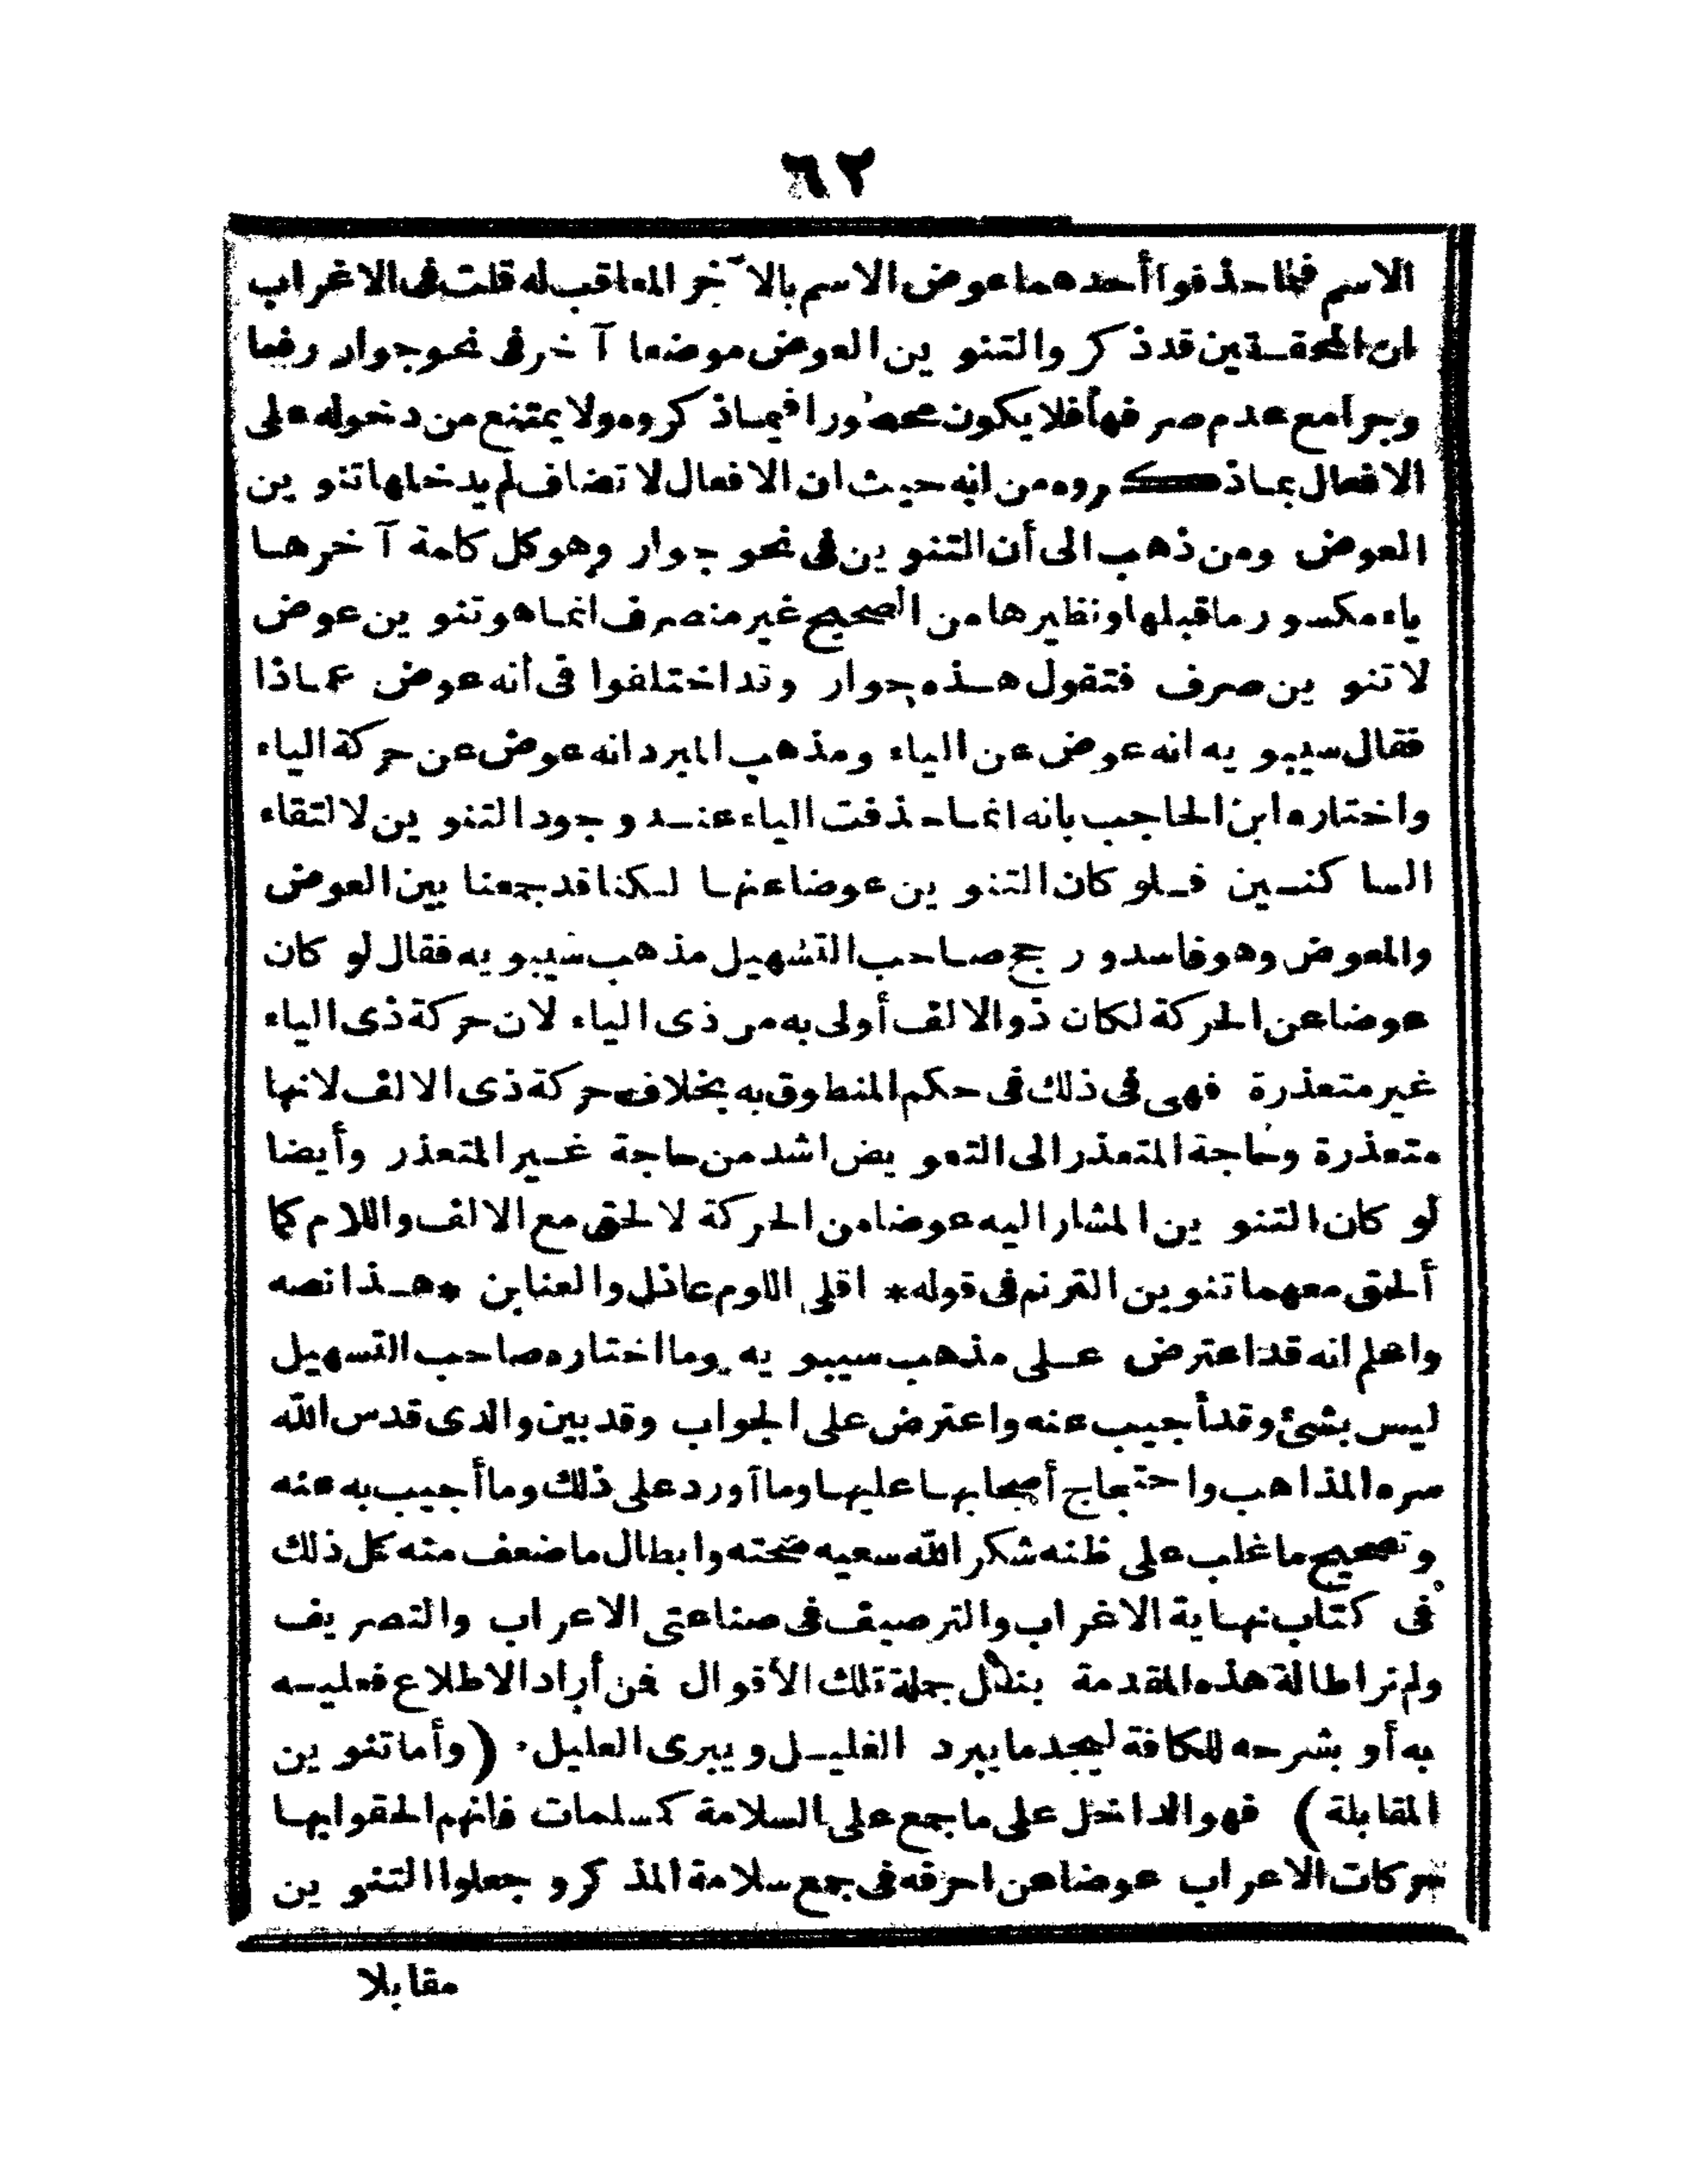 ٦٢
الاسم فلما حذفوا أحدهما عوض الاسم بالآخر المعاقب له قلت فى الاغراب
ان المحققين قد ذكر والتنوين العوض موضعا آخر فى نحو جوار رفعا
وجرا مع عدم صرفها فلا يكون محصورا فيما ذكروه ولا يمتنع من دخوله على
الافعال بما ذكروه من انه حيث ان الافعال لا تضاف لم يدخلها تنوين
العوض ومن ذهب الى أن التنوين فى نحو جوار وهو كل كلمة آخرها
ياء مكسور ما قبلها ونظيرها من الصحيح غير منصرف انما هو تنوين عوض
لا تنوين صرف فتقول هذه جوار وقد اختلفوا فى أنه عوض عماذا
فقال سيبويه انه عوض عن الياء ومذهب المبرد انه عوض عن حركة الياء
واختاره ابن الحاجب بانه انما حذفت الياء عند وجود التنوين لالتقاء
الساكنين فلو كان التنوين عوضا عنها لكنا قد جمعنا بين العوض
والمعوض وهو فاسد ورجح صاحب التسهيل مذهب سيبويه فقال لو كان
عوضا عن الحركة لكان ذو الالف أولى به من ذى الياء لان حركة ذى الياء
غير متعذرة فهى فى ذلك فى حكم المنطوق به بخلاف حركة ذى الالف لانها
متعذرة وحاجة المتعذر الى التعويض اشد من حاجة غير المتعذر وأيضا
لو كان التنوين المشار اليه عوضا من الحركة لالحق مع الالف واللام كما
ألحق معهما تنوين الترنم فى قوله * اقلى اللوم عاذل والعتابن * هذا نصه
واعلم انه قد اعترض على مذهب سيبويه وما اختاره صاحب التسهيل
ليس بشئ وقد أجيب عنه واعترض على الجواب وقد بين والدى قدس الله
سره المذاهب واحتجاج أصحابها عليها وما آورد على ذلك وما أجيب به عنه
وتصحيح ما غلب على ظنه شكر الله سعيه صحته وابطال ما ضعف منه كل ذلك
فى كتاب نهاية الاغراب والترصيف فى صناعتى الاعراب والتصريف
ولم نر اطالة هذه المقدمة بنقل جملة تلك الأقوال فمن أراد الاطلاع فعليه
به أو بشرحه للكافة ليجد ما يبرد الغليل ويبرى العليل. (وأما تنوين
المقابلة) فهو الداخل على ما جمع على السلامة كمسلمات فانهم الحقوا بها
حركات الاعراب عوضا عن احرفه فى جمع سلامة المذكر وجعلوا التنوين
مقابلا